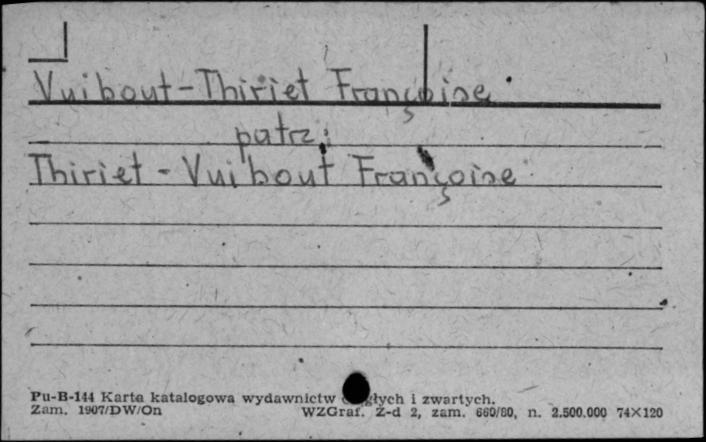 Vuibout-Thiriet Françoise
patrz:
Thiriet - Vuibout Françoise
Pu-B-144 Karta katalogowa wydawnictw i zwartych.
Zam. 1907/DW/On WZGraf. Z-d 2, zam. 660/80, n. 2.500.000 74×120